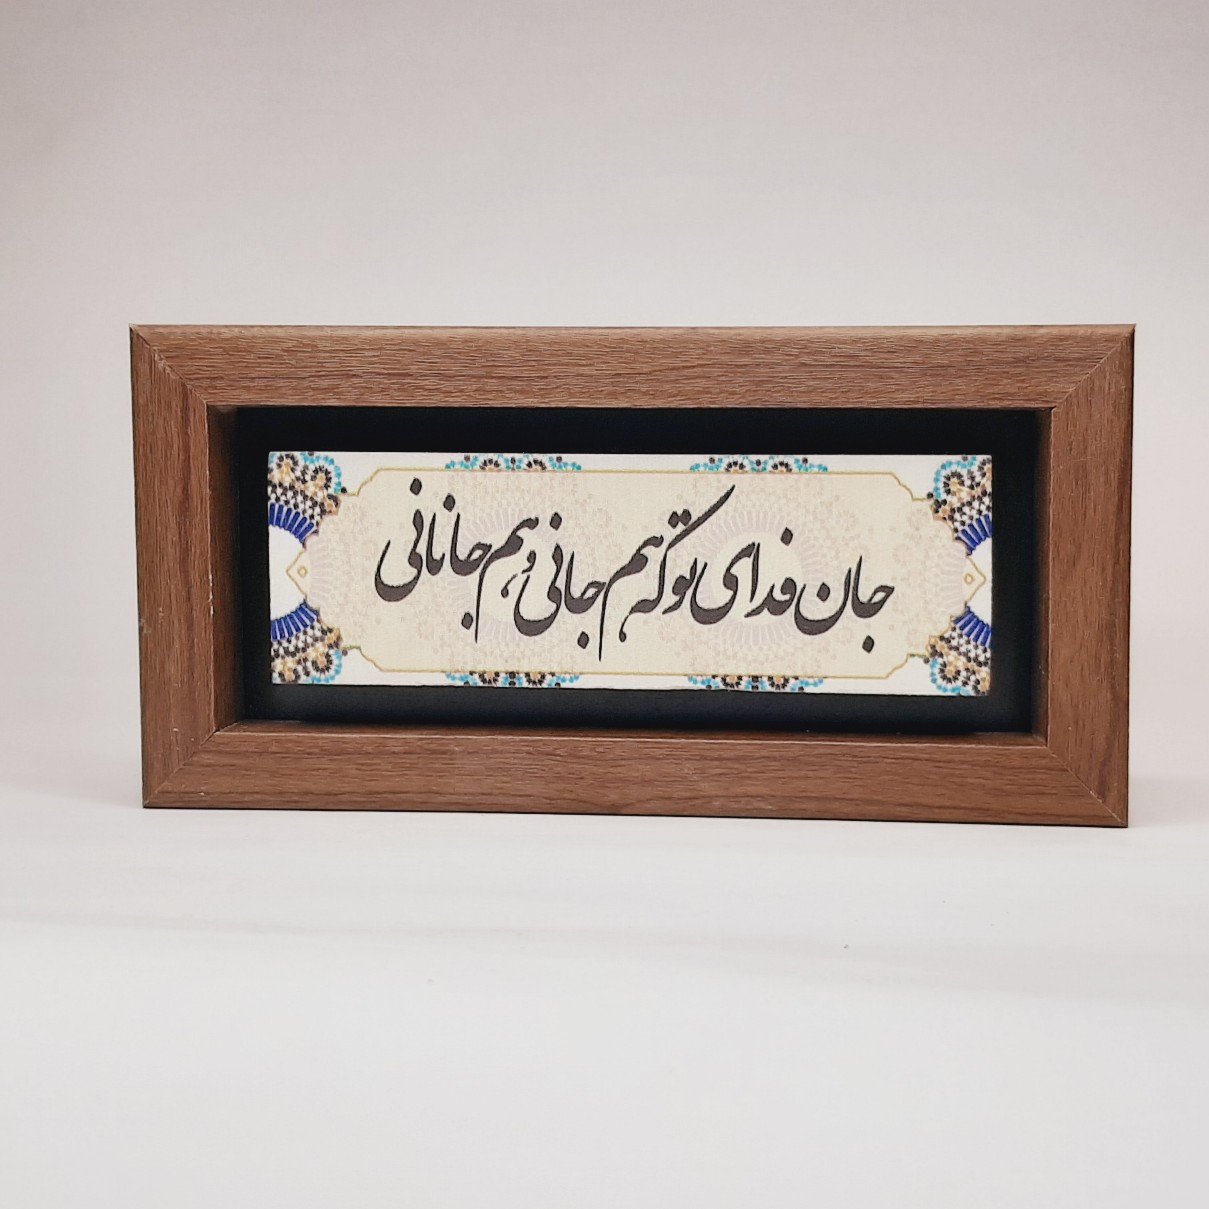 جان فدای تو که هم جانی و هم جانانی